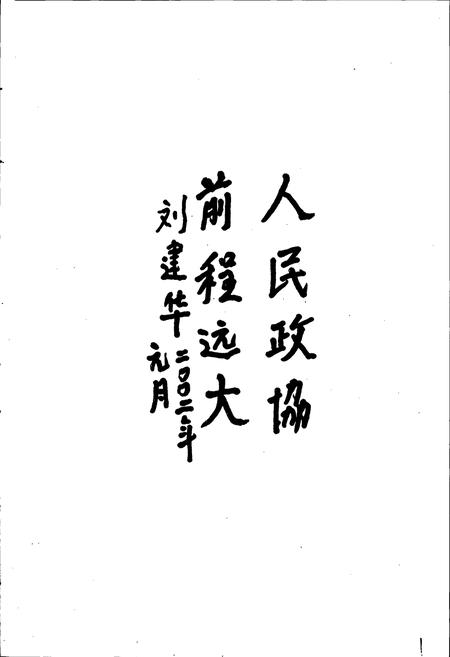 人民政協
前程远大
刘建华二〇〇二年
元月